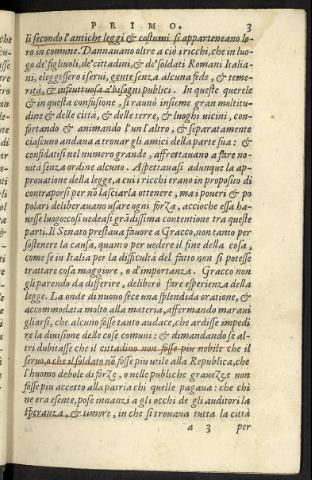 PRIMO. 3
li secondo l'antiche leggi & costumi si apparteneano lo-
ro in comune. Dannauano oltre a ciò i ricchi, che in luo-
go de' figliuoli, de' cittadini, & de' soldati Romani Italia-
ni, eleggessero i serui, gente senza alcuna fede, & teme-
rità, & infruttuosa a' bisogni publici. In queste querele
& in questa confusione, si raunò insieme gran moltitu-
dine & delle città, & delle terre, & luoghi uicini, con-
fortando & animando l'un l'altro, & separatamente
ciascuno andaua a trouar gli amici della parte sua: &
confidatisi nel numero grande, affrettauano a fare no-
uità senza ordine alcuno. Aspettauasi adunque la ap-
prouatione della legge, a cui i ricchi erano in proposito di
contraporsi per nō lasciarla ottenere, ma i poueri & po
polari deliberauano usare ogni forza, accioche essa ha-
uesse luogo: così uedeasi grādissima contentione tra queste
parti. Il Senato prestaua fauore a Gracco, non tanto per
sostenere la causa, quanto per uedere il fine della cosa,
come se in Italia per la difficultà del fatto non si potesse
trattare cosa maggiore, o d'importanza. Gracco non
gli parendo da differire, deliberò fare esperienza della
legge. La onde di nuouo fece una splendida oratione, &
accommodata molto alla materia, affermando maraui
gliarsi, che alcuno fosse tanto audace, che ardisse impedi
re la diuisione delle cose comuni: & dimandando se al-
tri dubitasse che il cittadino non fosse piu nobile che il
seruo, o che il soldato nō fosse piu utile alla Republica, che
l'huomo debole di forze, o nelle publiche grauezze non
fosse piu accetto alla patria chi quelle pagaua: che chi
ne era esente, pose innanzi a gli occhi de gli auditori la
speranza, & timore, in che si trouaua tutta la città
a 3 per